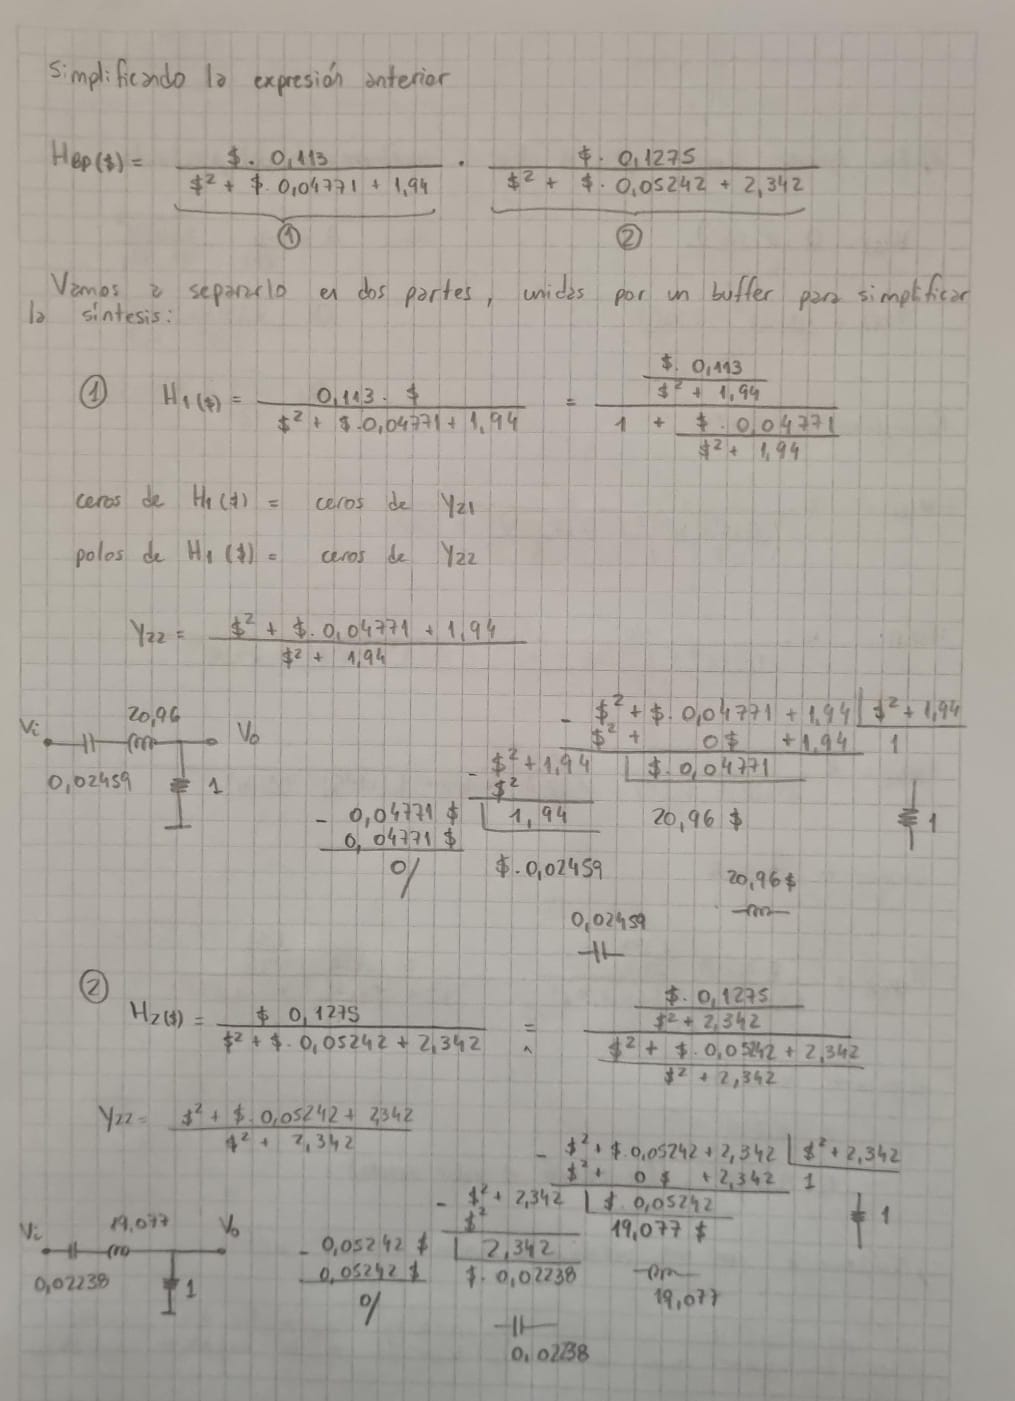 Simplificando la expresión anterior
HBP($) = $. 0,113 / $² + $. 0,04771 + 1,94 · $. 0,1275 / $² + $. 0,05242 + 2,342
① ②
Vamos a separarlo en dos partes, unidas por un buffer para simplificar
la síntesis:
① H1($) = 0,113. $ / $² + $.0,04771 + 1,94 = $. 0,113 / $² + 1,94 / 1 + $. 0,04771 / $² + 1,94
ceros de H1($) = ceros de Y21
polos de H1($) = ceros de Y22
Y22 = $² + $. 0,04771 + 1,94 / $² + 1,94
Vi 20,96 Vo
0,02459 1
- $² + $. 0,04771 + 1,94 $² + 1,94
$² + 0$ + 1,94 1
- $² + 1,94 $. 0,04771
$²
- 0,04771 $ 1,94 20,96 $ 1
0,04771 $
0/ $. 0,02459
20,96 $
0,02459
② H2($) = $ 0,1275 / $² + $. 0,05242 + 2,342 = $. 0,1275 / $² + 2,342 / $² + $. 0,05242 + 2,342 / $² + 2,342
Y22 = $² + $. 0,05242 + 2,342 / $² + 2,342
- $² + $. 0,05242 + 2,342 $² + 2,342
$² + 0 $ + 2,342 1
- $² + 2,342 $. 0,05242 1
$² 19,077 $
Vi 19,077 Vo
0,02238 1
- 0,05242 $ 2,342
0,05242 $ $. 0,02238
0/ 19,077
0,02238